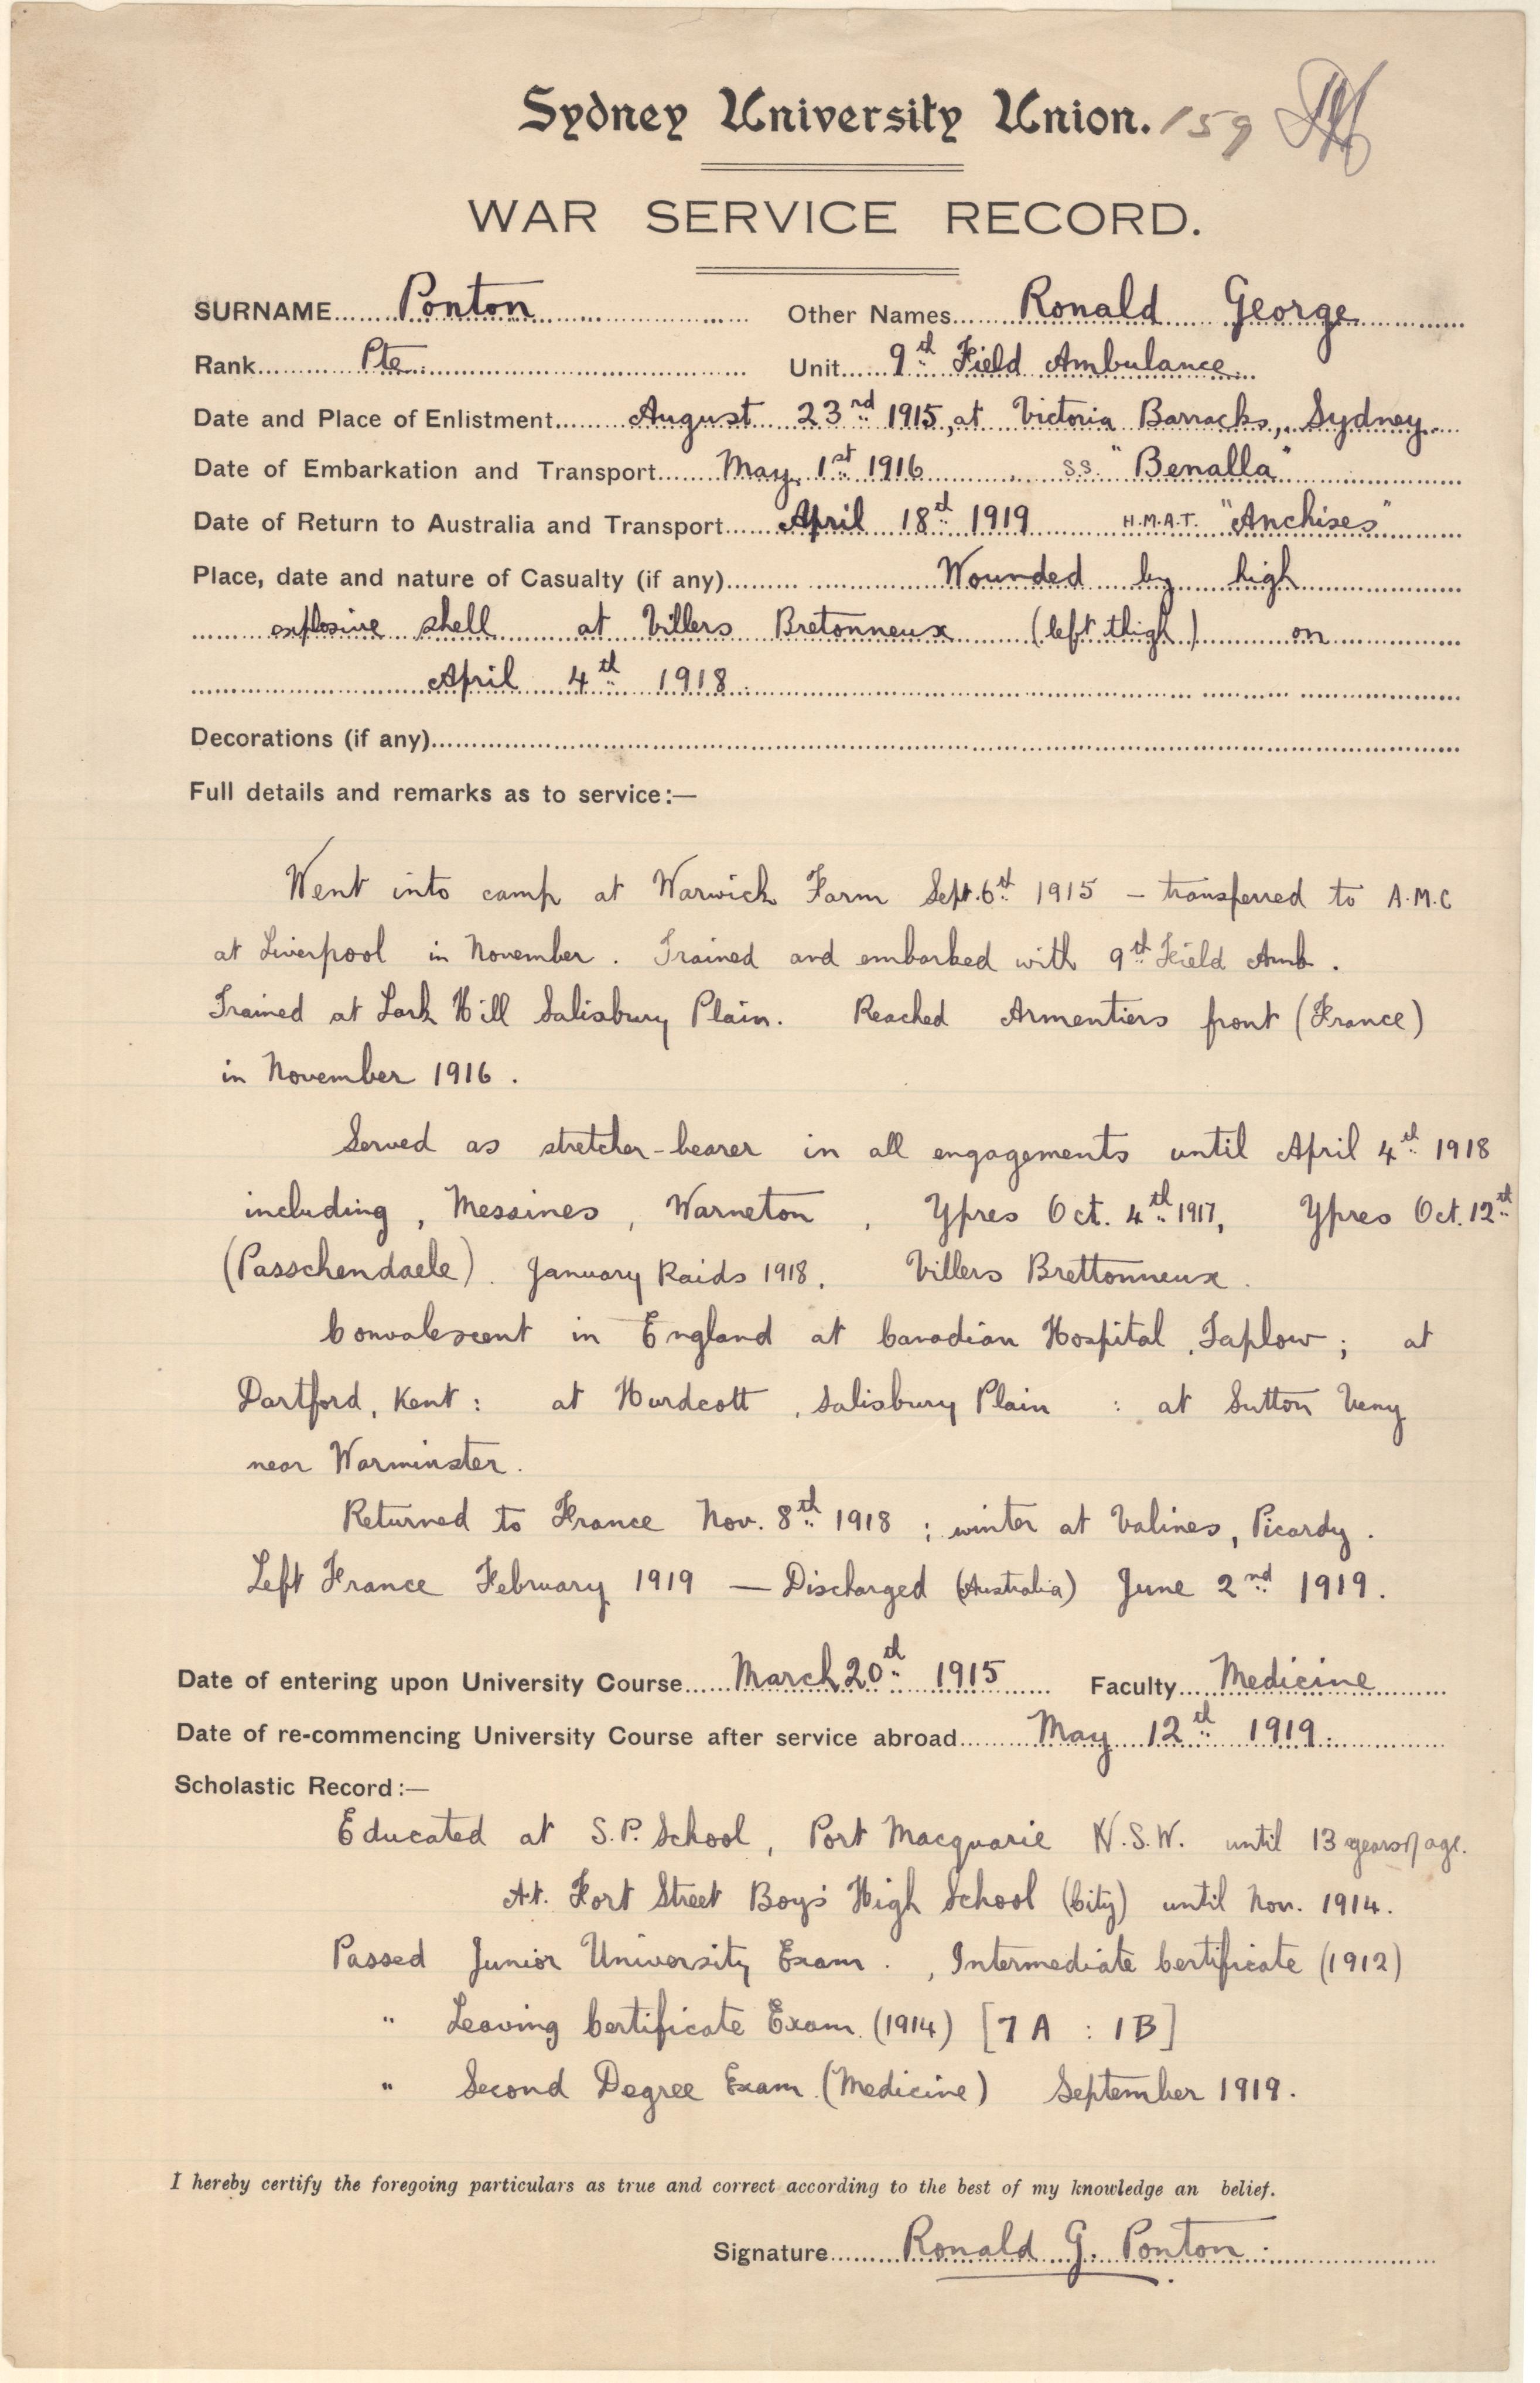 Sydney University Union. 159
WAR SERVICE RECORD.
SURNAME Ponton Other Names Ronald George
Rank Pte. Unit 9th Field Ambulance.
Date and Place of Enlistment August 23rd 1915, at Victoria Barracks, Sydney.
Date of Embarkation and Transport May 1st 1916 S.S. "Benalla"
Date of Return to Australia and Transport April 18th 1919 H.M.A.T. "Anchises"
Place, date and nature of Casualty (if any) Wounded by high
explosive shell at Villers Bretonneux (left thigh) on
April 4th 1918.
Decorations (if any)
Full details and remarks as to service:—
Went into camp at Warwick Farm Sept. 6th 1915 – transferred to A.M.C
at Liverpool in November. Trained and embarked with 9th Field Amb.
Trained at Lark Hill Salisbury Plain. Reached Armentiers front (France)
in November 1916.
Served as stretcher-bearer in all engagements until April 4th 1918
including, Messines, Warneton, Ypres Oct. 4th 1917, Ypres Oct. 12th
(Passchendaele). January Raids 1918. Villers Brettonneux.
Convalescent in England at Canadian Hospital, Taplow; at
Dartford, Kent: at Hurdcott, Salisbury Plain : at Sutton Veny
near Warminster.
Returned to France Nov. 8th 1918; winter at Valines, Picardy.
Left France February 1919 — Discharged (Australia) June 2nd 1919.
Date of entering upon University Course March 20th 1915 Faculty Medicine
Date of re-commencing University Course after service abroad May 12th 1919.
Scholastic Record:—
Educated at S.P. School, Port Macquarie N.S.W. until 13 years of age.
At. Fort Street Boys' High School (City) until Nov. 1914.
Passed Junior University Exam., Intermediate Certificate (1912)
" Leaving Certificate Exam. (1914) [7A : 1B]
" Second Degree Exam. (Medicine) September 1919.
I hereby certify the foregoing particulars as true and correct according to the best of my knowledge an belief.
Signature Ronald G. Ponton.